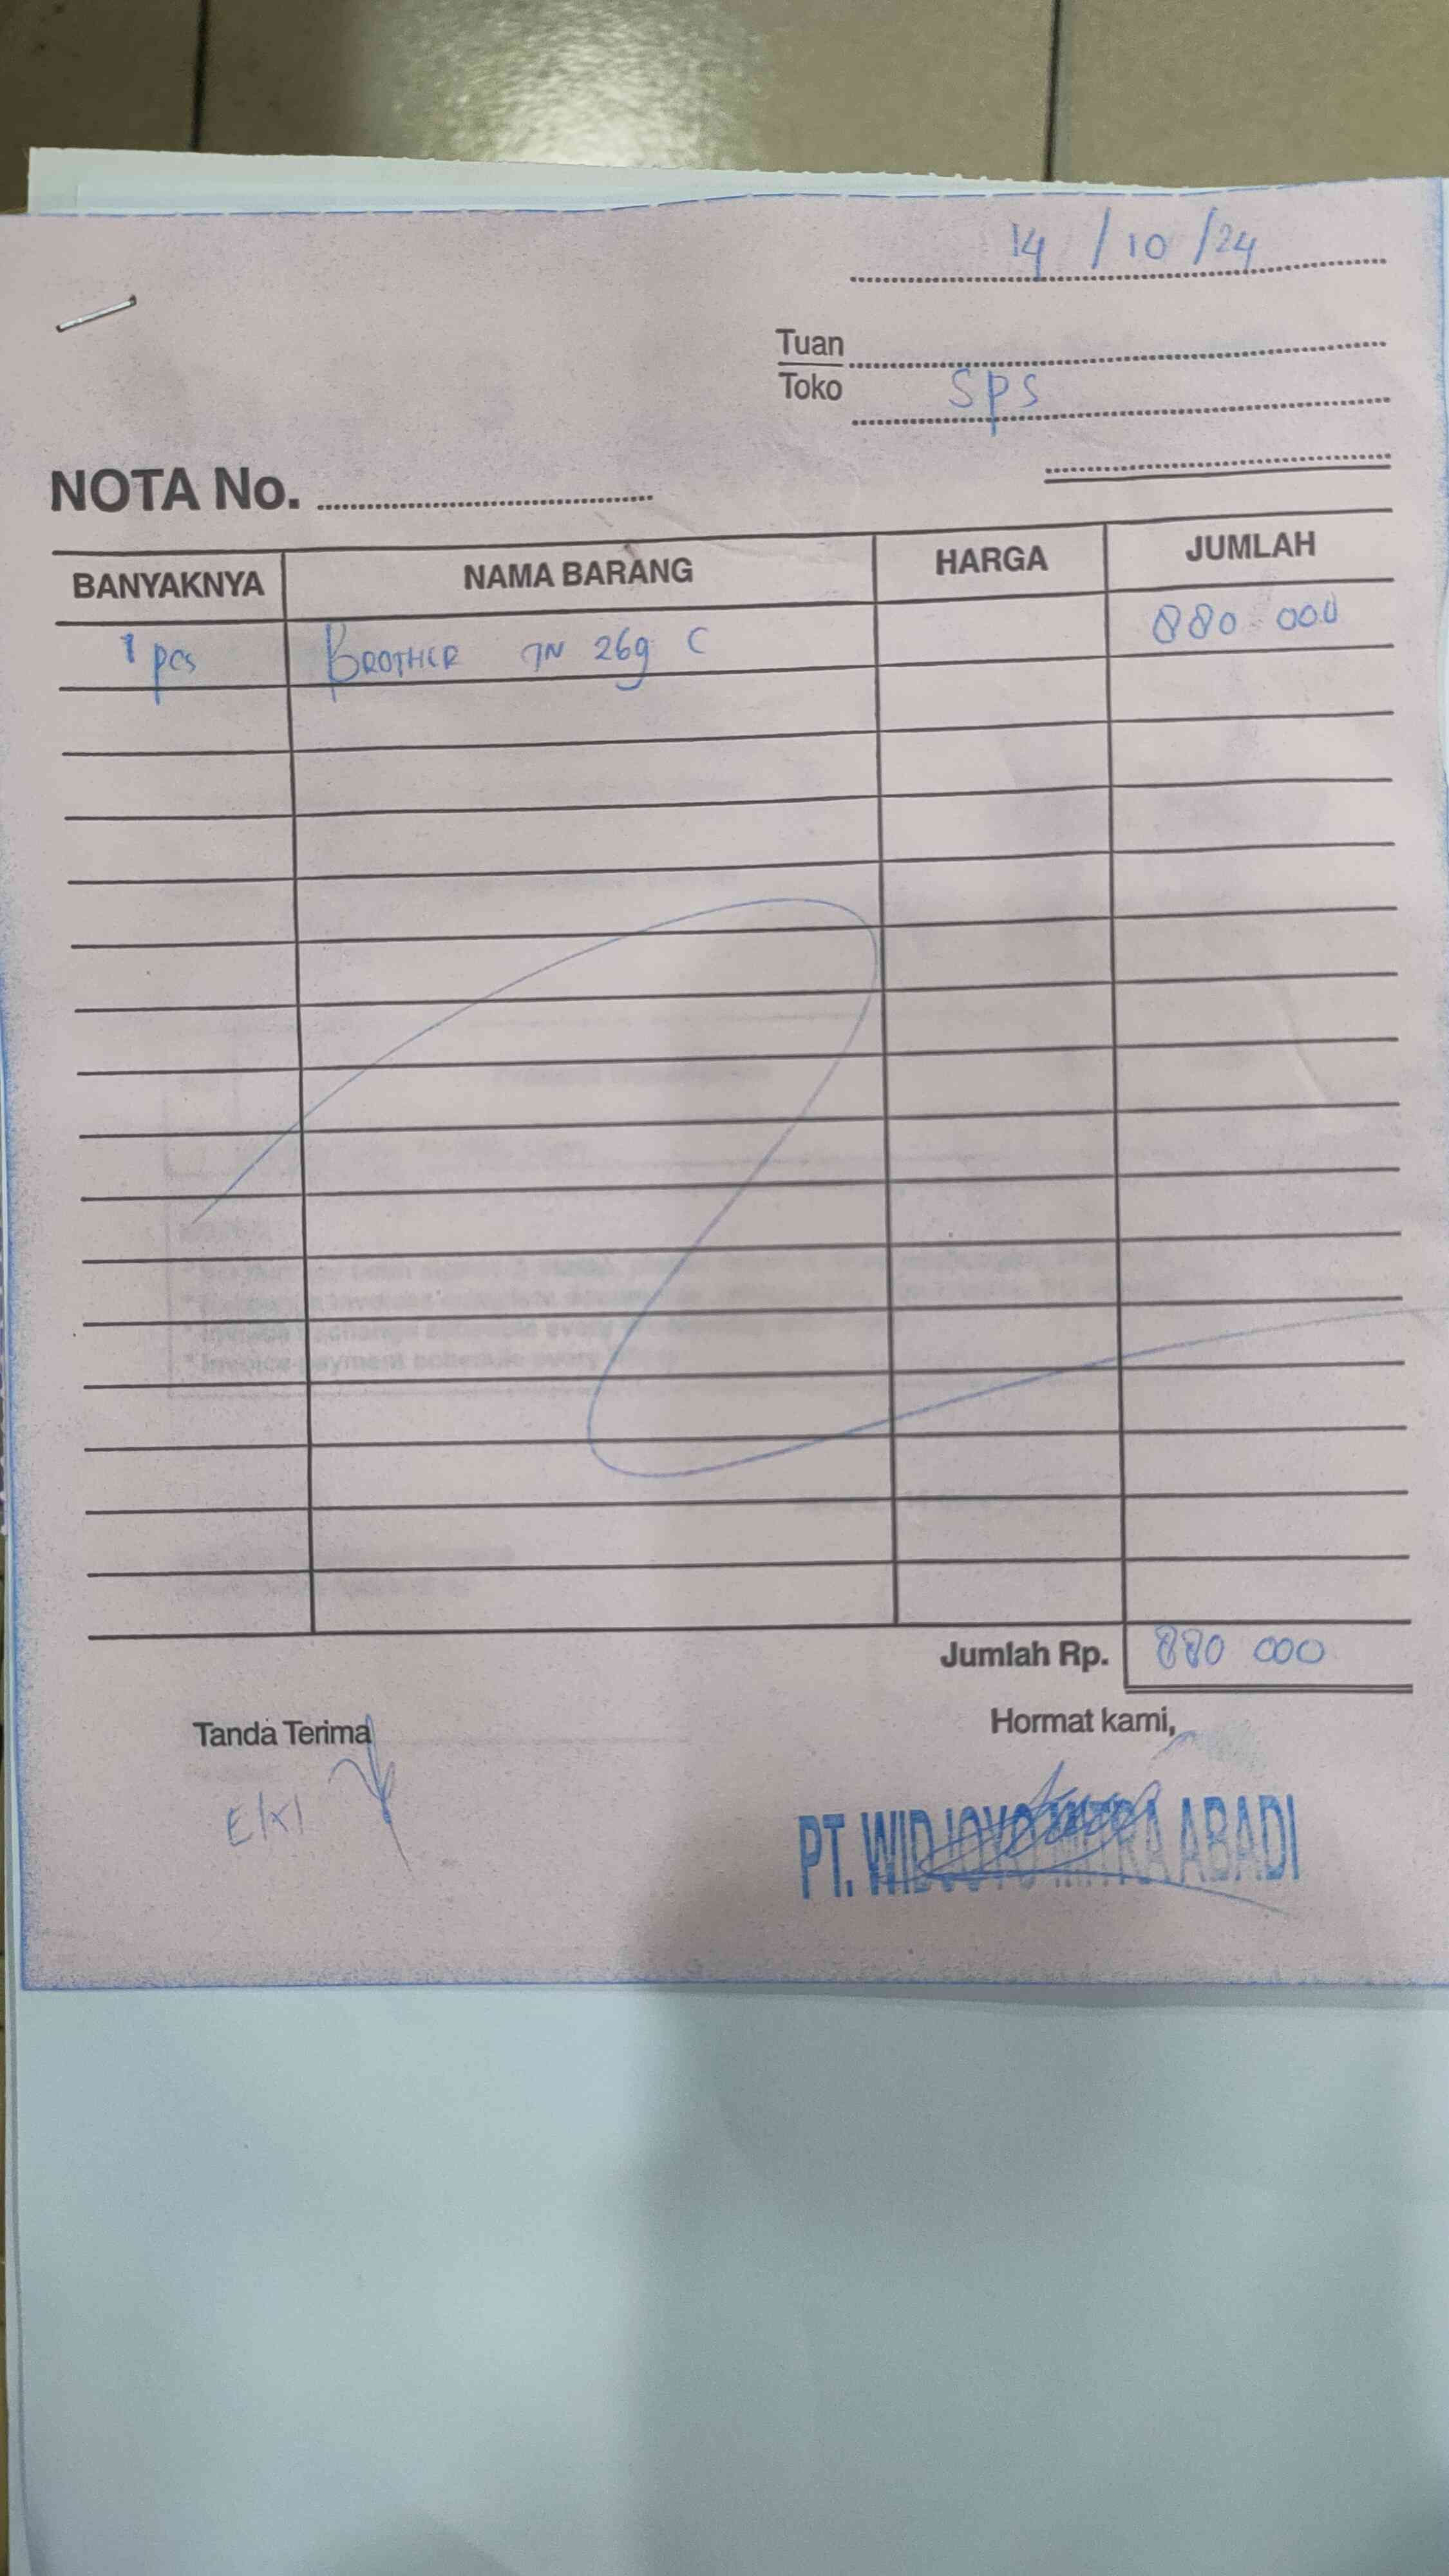 14 / 10 / 24
Tuan
Toko SPS
NOTA No.
BANYAKNYA NAMA BARANG HARGA JUMLAH
1 pcs BROTHER TN 269 C 880 000
Jumlah Rp. 880 000
Tanda Terima Hormat kami,
EKI
PT. WIDJOYO MITRA ABADI